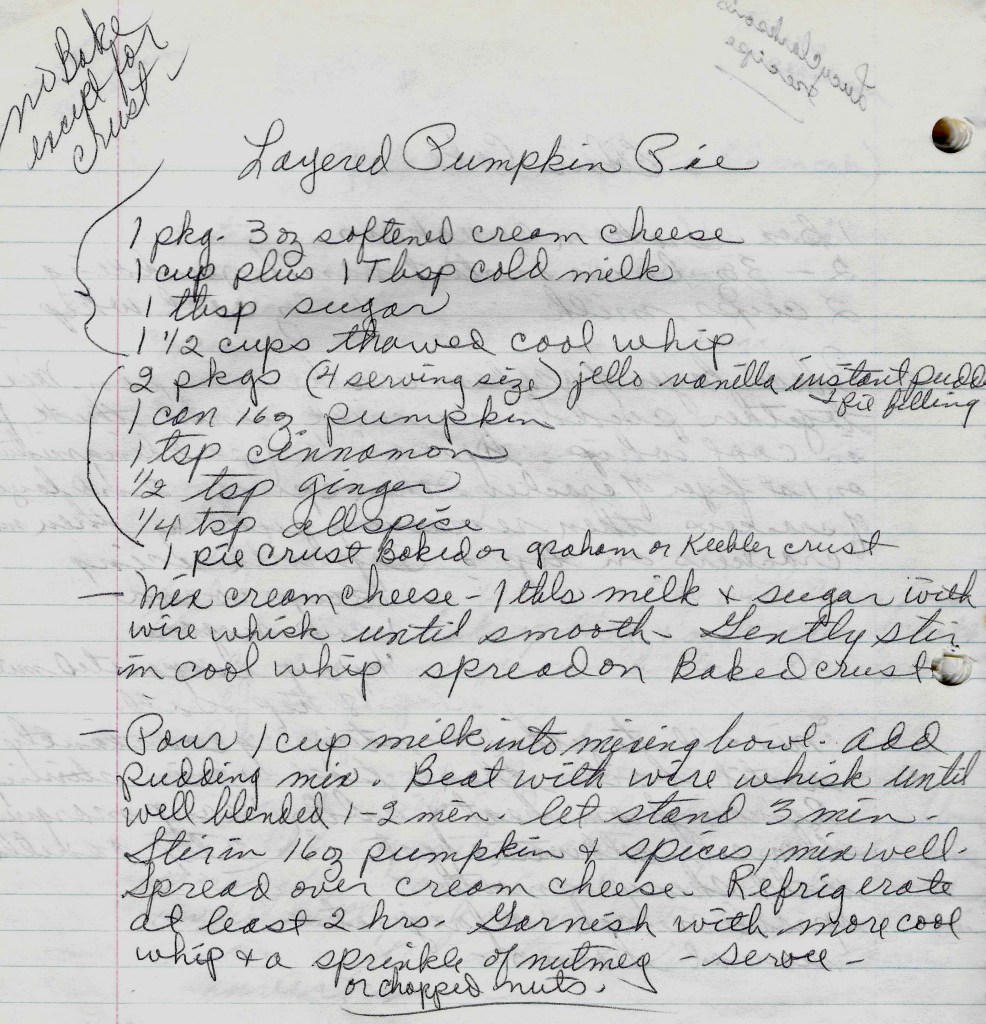 no Bake
except for
crust
Lucy Clarkson's
recipe
Layered Pumpkin Pie
1 pkg. 3 oz softened cream cheese
1 cup plus 1 Tbsp cold milk
1 tbsp sugar
1 1/2 cups thawed cool whip
2 pkgs (4 serving size) jello vanilla instant pudd
+ pie filling
1 can 16 oz pumpkin
1 tsp cinnamon
1/2 tsp ginger
1/4 tsp allspice
1 pie crust Baked or graham or Keebler crust
— Mix cream cheese - 1 tbls milk & sugar with
wire whisk until smooth - Gently stir
in cool whip spread on Baked crust
— Pour 1 cup milk into mixing bowl. add
pudding mix. Beat with wire whisk until
well blended 1-2 min. let stand 3 min.
Stir in 16 oz pumpkin & spices, mix well.
Spread over cream cheese. Refrigerate
at least 2 hrs. Garnish with more cool
whip & a sprinkle of nutmeg - serve -
or chopped nuts.